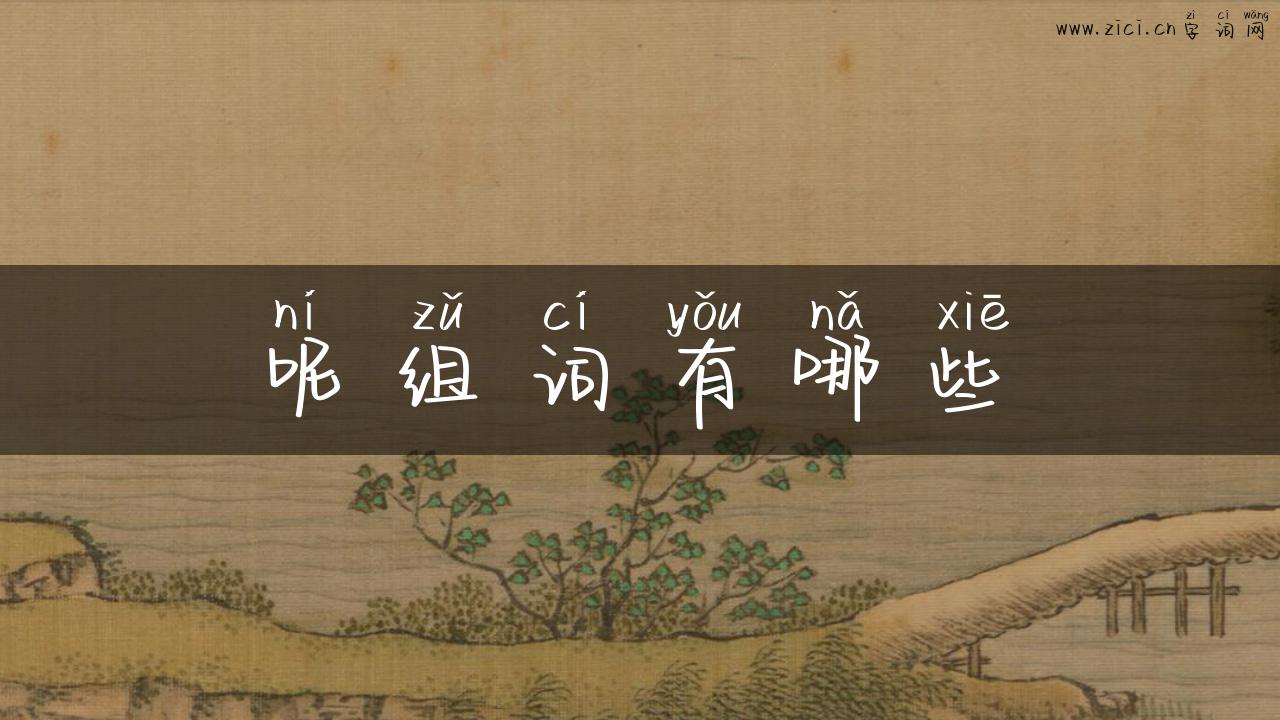 zì cí wǎng
www.zici.cn字词网
ní zǔ cí yǒu nǎ xiē
呢组词有哪些